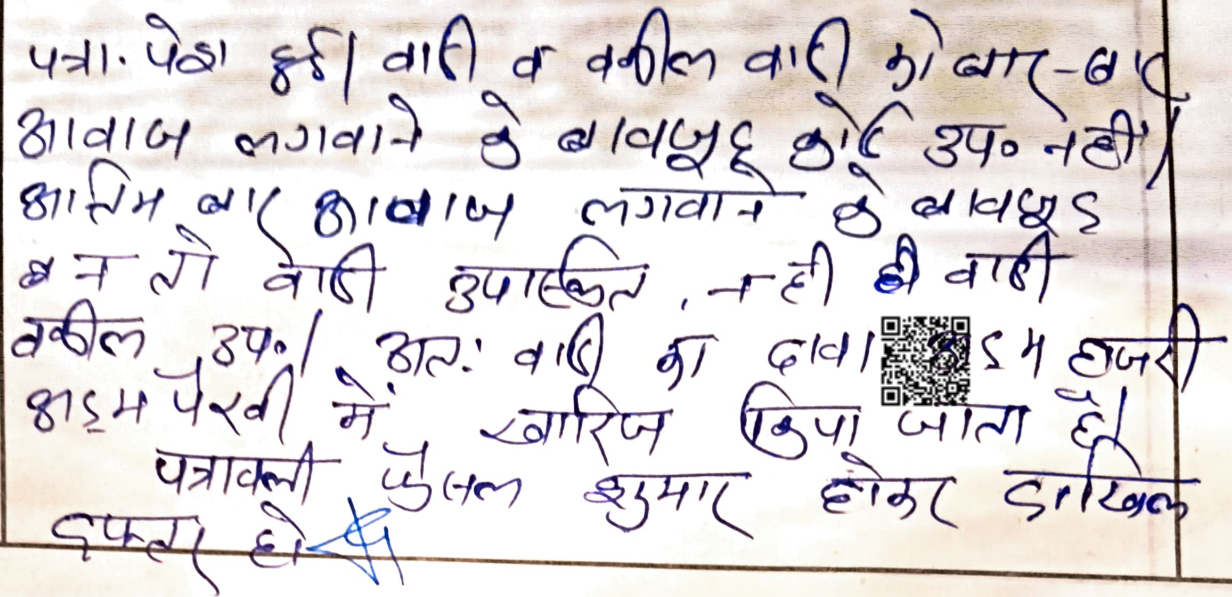 पत्रा. पेश हुई। वादी व वकील वादी को बार-बार
आवाज लगवाने के बावजूद कोई उप० नहीं।
अन्तिम बार आवाज लगवाने के बावजूद
व न तो वादी उपस्थित, न ही वादी
वकील उप०। अतः वादी का दावा अदम हाजरी
अदम पैरवी में खारिज किया जाता है।
पत्रावली फैसल शुमार होकर दाखिल
दफ्तर हो